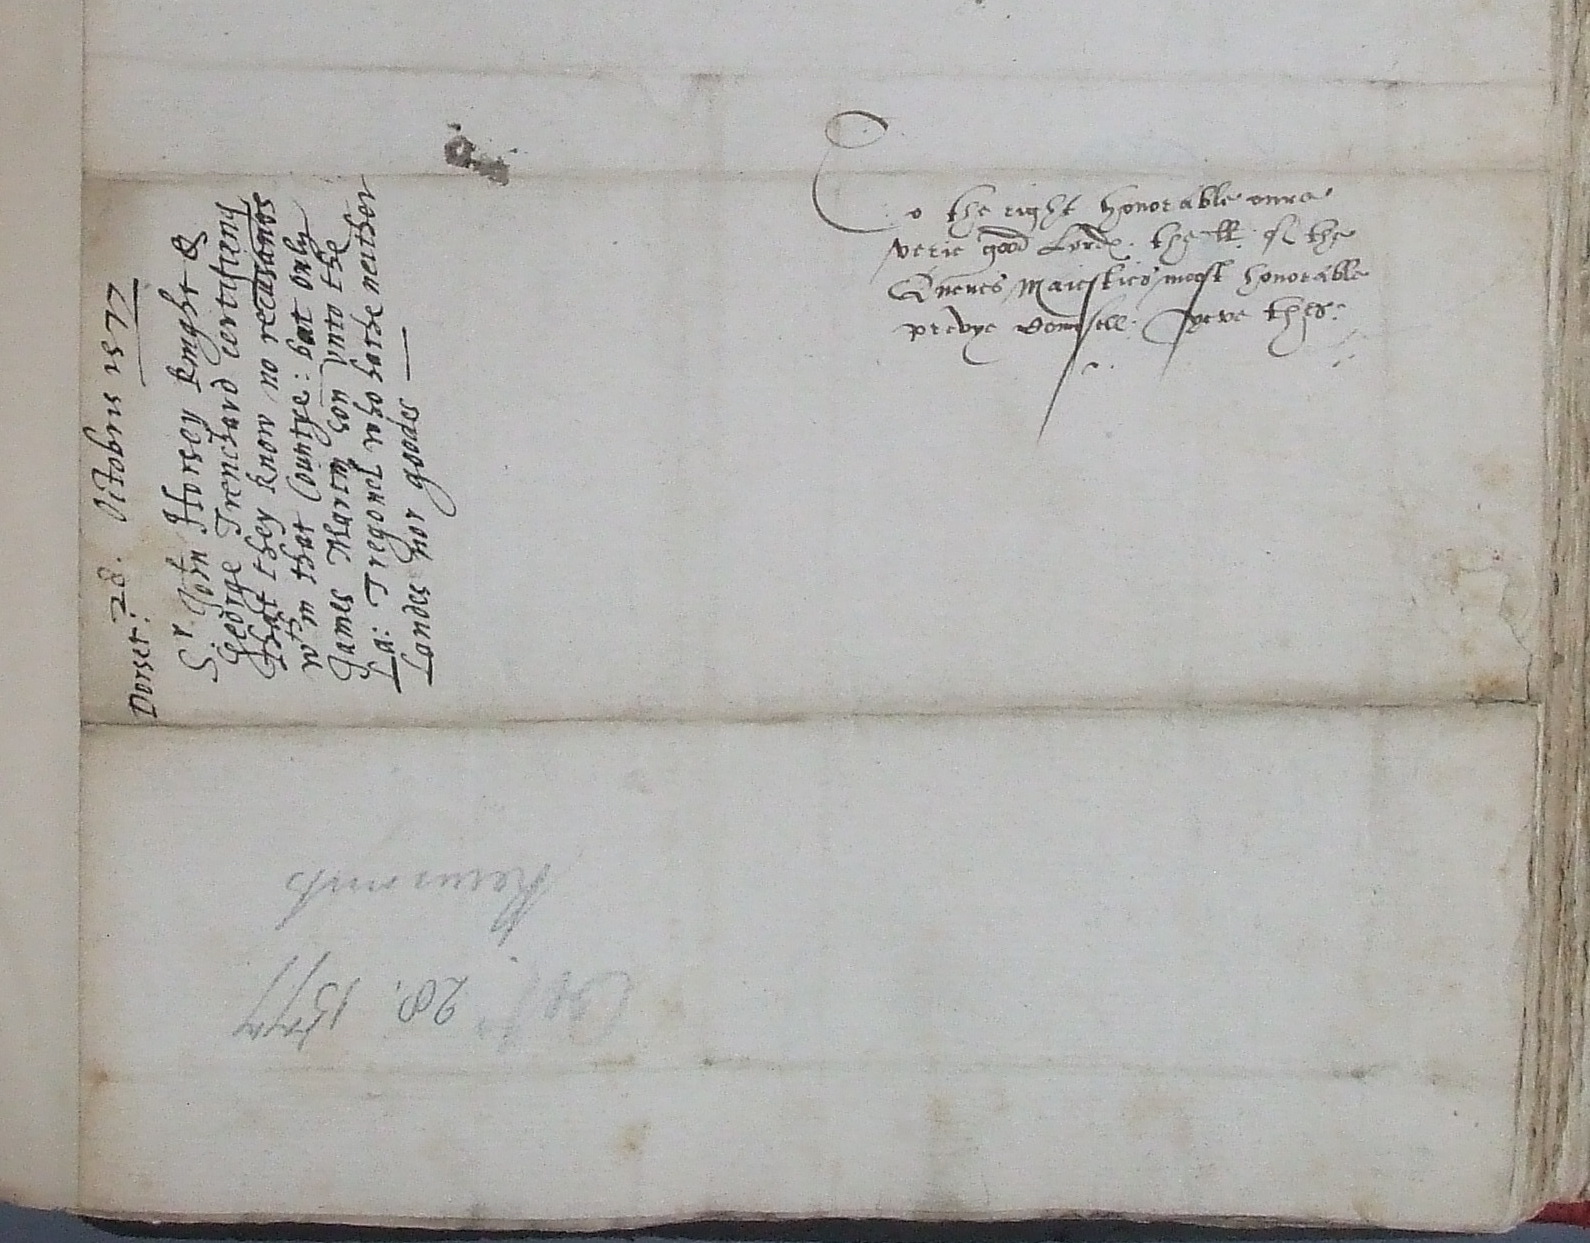 To the right honorable oure
verie good Lordes. the ll. of the
Quenes Maiesties most honorable
prevye Counsell. yeve thes:
28. Octobris 1577
Dorset:
Sr. John Horsey knight &
George Trenchard certifieng
that they know no recusances
wthin that Countye: but only
James Martin son vnto the
La: Tregonel who hathe neither
Landes nor goodes
Recusants
Oct. 28. 1577